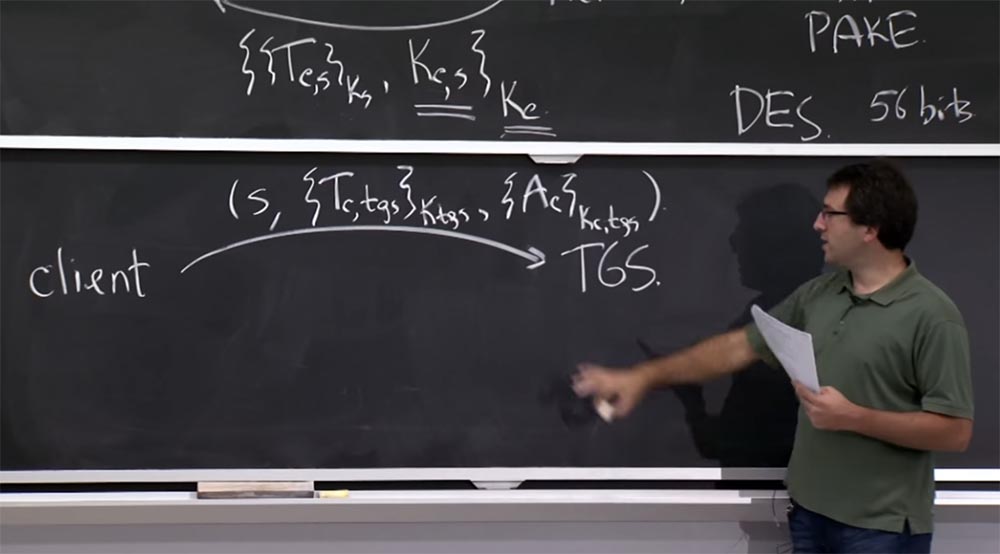 PAKE.
{{Tc,s}Ks, Kc,s}Kc
DES. 56 bits
(s, {Tc,tgs}Ktgs, {Ac}Kc,tgs).
client
TGS.